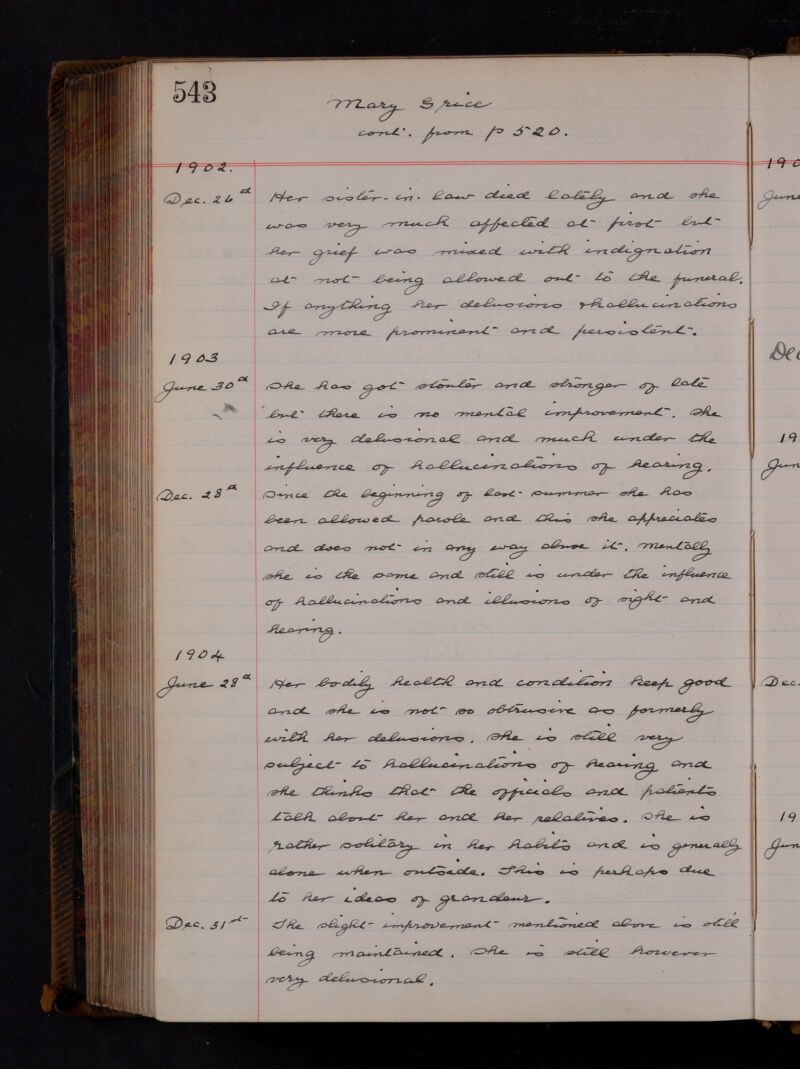 543
Mary Spice
cont. from p 520.
1902.
Dec. 26th Her sister-in-law died lately and she
was very much affected at first but
her grief was mixed with indignation
at not being allowed out to the funeral.
If anything her delusions & hallucinations
are more prominent and persistent.
1903
June 30th She has got stouter and stronger of late
but there is no mental improvement. She
is very delusional and much under the
influence of hallucinations of hearing.
Dec. 28th Since the beginning of last summer she has
been allowed parole and this she appreciates
and does not in any way abuse it. Mentally
she is the same and still is under the influence
of hallucinations and illusions of sight and
hearing.
1904
June 28th Her bodily health and condition keep good
and she is not so obtrusive as formerly
with her delusions. She is still very
subject to hallucinations of hearing and
she thinks that the officials and patients
talk about her and her relatives. She is
rather solitary in her habits and is generally
alone when outside. This is perhaps due
to her ideas of grandeur.
Dec. 31st The slight improvement mentioned above is still
being maintained. She is still however
very delusional.
190
June
Dec
19
Jun
Dec.
19
Jun